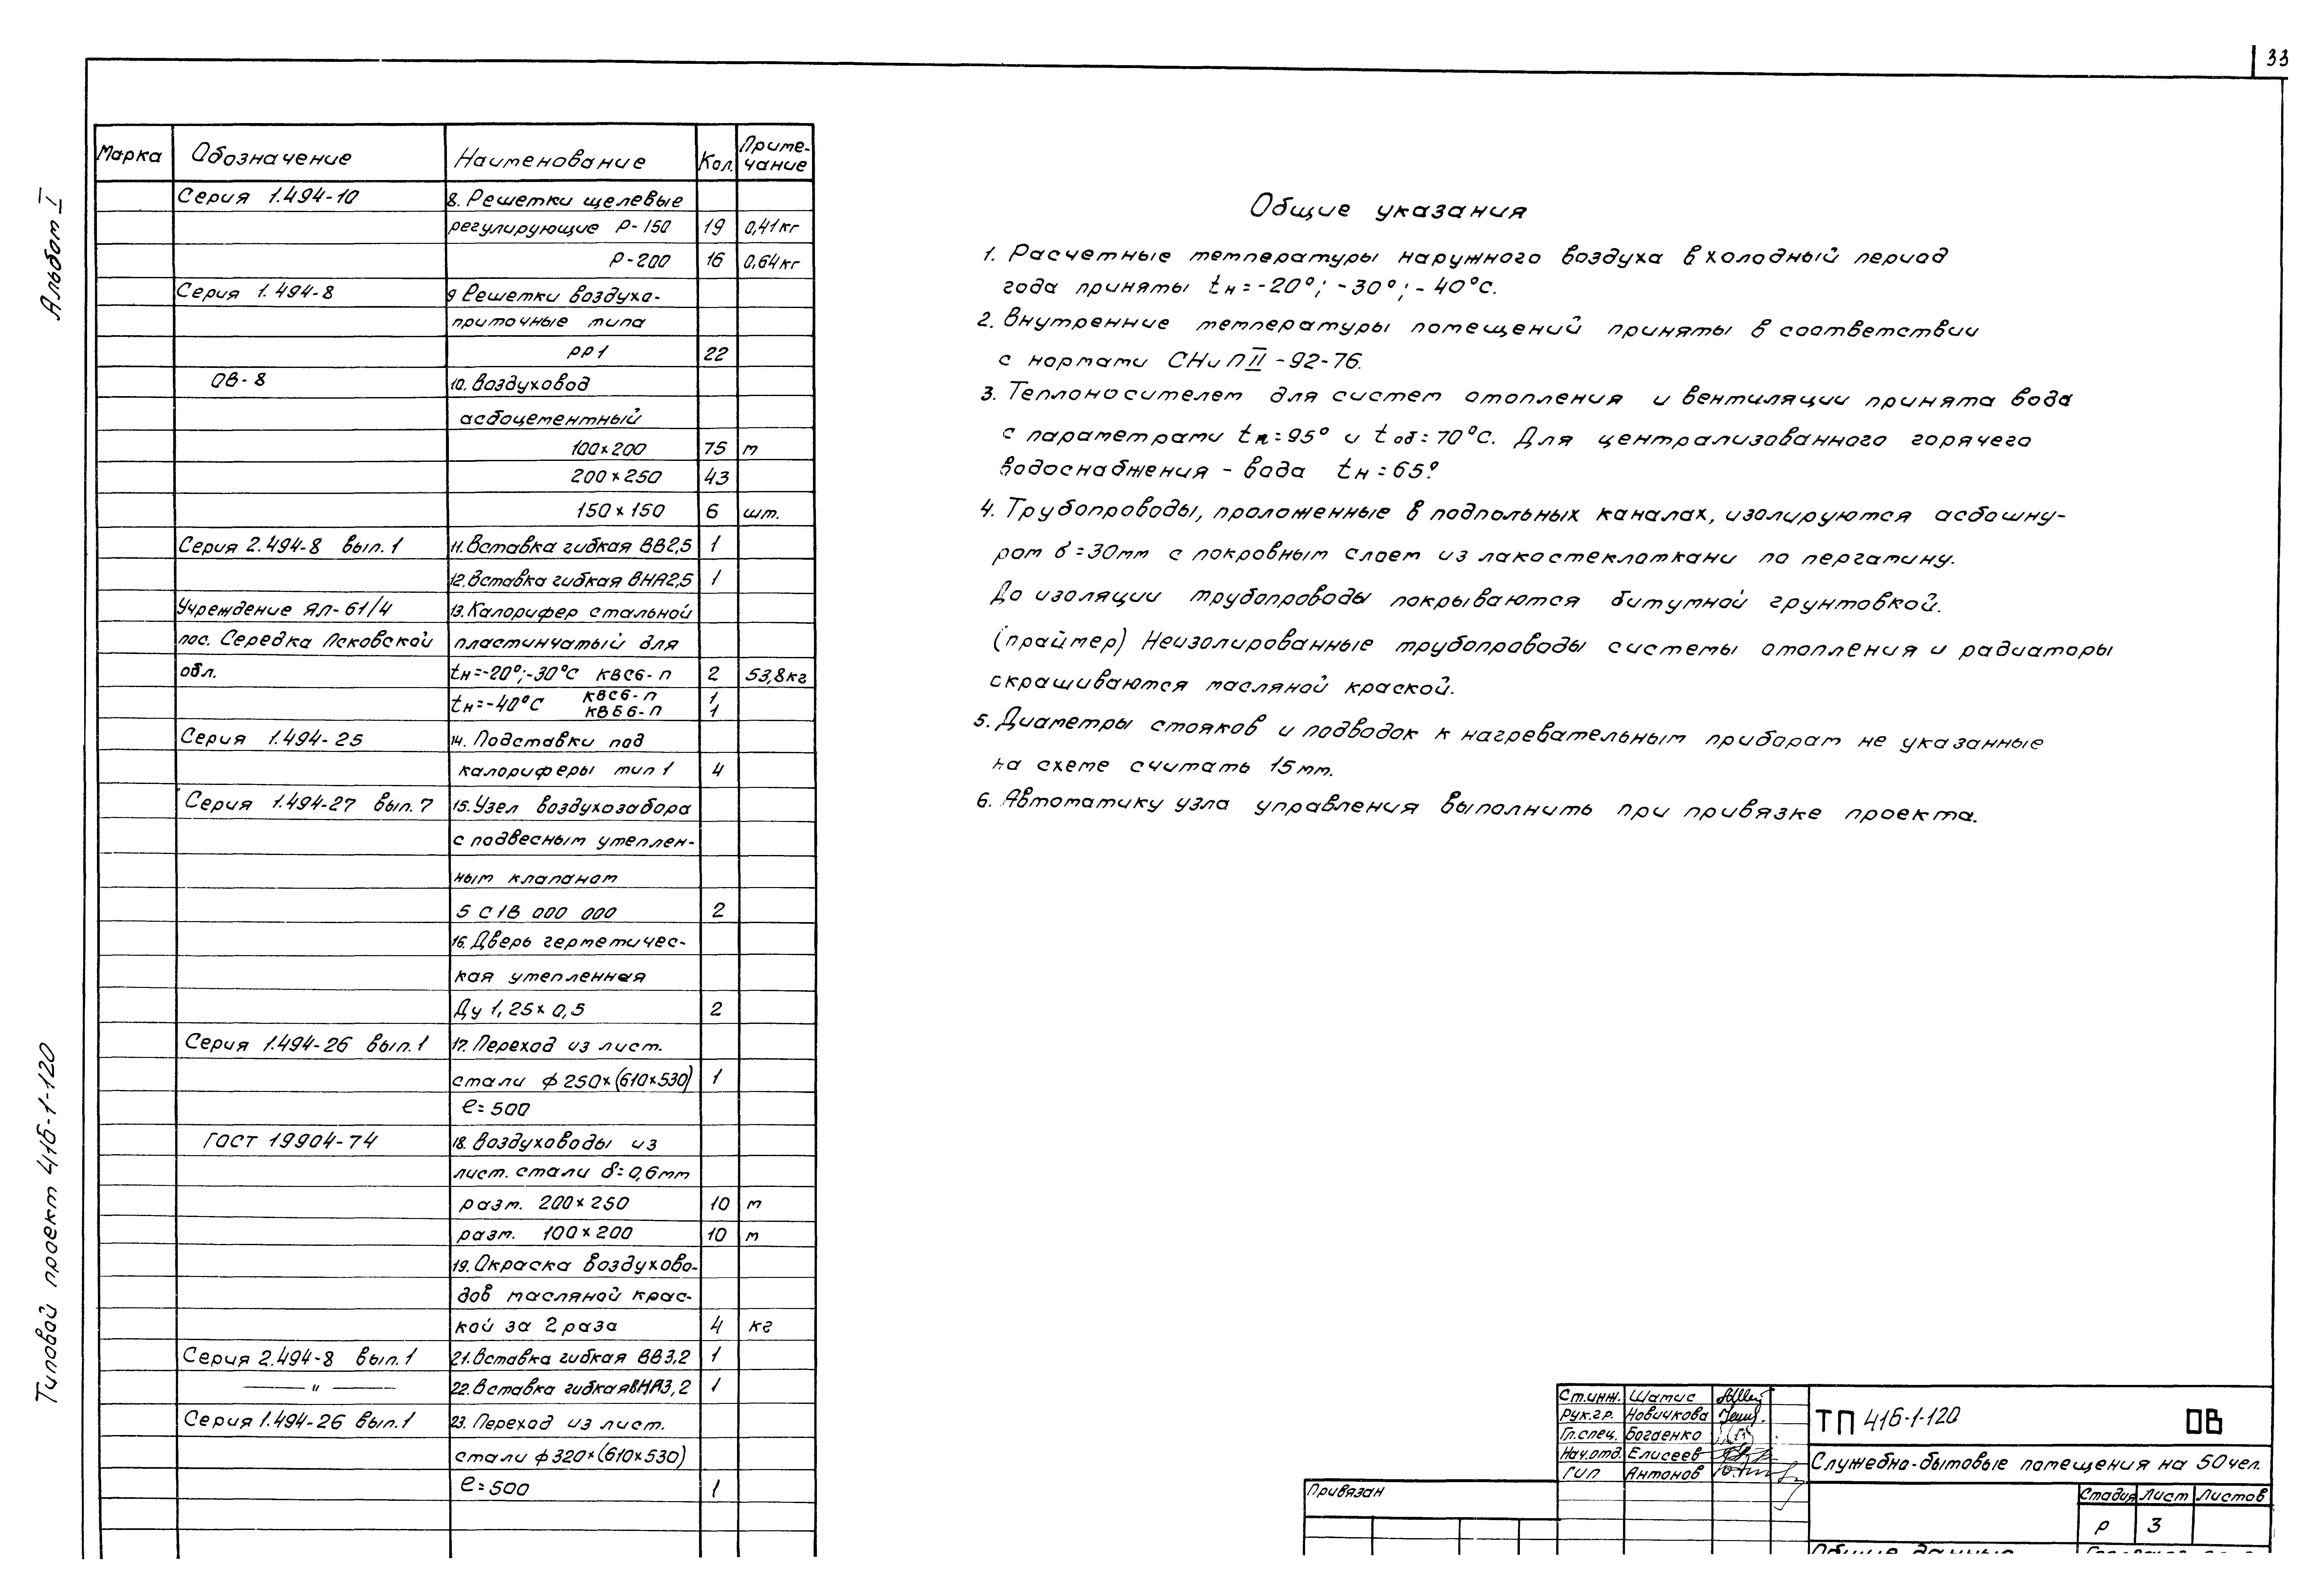 33
Альбом I
Типовой проект 416-1-120
Марка Обозначение Наименование Кол. Приме-чание
Серия 1.494-10 8. Решетки щелевые
регулирующие Р-150 19 0,41кг
Р-200 16 0,64кг
Серия 1.494-8 9 Решетки воздухо-
приточные типа
РР1 22
ОВ-8 10. Воздуховод
асбоцементный
100×200 75 м
200×250 43
150×150 6 шт.
Серия 2.494-8 вып.1 11. Вставка гибкая ВВ2,5 1
12. Вставка гибкая ВНА2,5 1
Учреждение ЯЛ-61/4 13. Калорифер стальной
пос. Середка Псковской пластинчатый для
обл. tн=-20°;-30°С КВС6-П 2 53,8кг
tн=-40°С КВС6-П 1
КВБ6-П 1
Серия 1.494-25 14. Подставки под
калориферы тип 1 4
Серия 1.494-27 вып.7 15. Узел воздухозабора
с подвесным утеплен-
ным клапаном
5 С1В 000 000 2
16. Дверь герметичес-
кая утепленная
Ду 1,25×0,5 2
Серия 1.494-26 вып.1 17. Переход из лист.
стали ф250×(610×530) 1
ℓ=500
ГОСТ 19904-74 18. Воздуховоды из
лист. стали δ=0,6мм
разм. 200×250 10 м
разм. 100×200 10 м
19. Окраска воздухово-
дов масляной крас-
кой за 2 раза 4 кг
Серия 2.494-8 вып.1 21. Вставка гибкая ВВ3,2 1
— " — 22. Вставка гибкая ВНА3,2 1
Серия 1.494-26 вып.1 23. Переход из лист.
стали ф320×(610×530)
ℓ=500 1
Общие указания
1. Расчетные температуры наружного воздуха в холодный период
года приняты tн=-20°; -30°; -40°С.
2. Внутренние температуры помещений приняты в соответствии
с нормами СНиП II-92-76.
3. Теплоносителем для систем отопления и вентиляции принята вода
с параметрами tп=95° и tоб=70°С. Для централизованного горячего
водоснабжения - вода tн=65°.
4. Трубопроводы, проложенные в подпольных каналах, изолируются асбошну-
ром δ=30мм с покровным слоем из лакостеклоткани по пергамину.
До изоляции трубопроводы покрываются битумной грунтовкой.
(праймер) Неизолированные трубопроводы системы отопления и радиаторы
окрашиваются масляной краской.
5. Диаметры стояков и подводок к нагревательным приборам не указанные
на схеме считать 15мм.
6. Автоматику узла управления выполнить при привязке проекта.
Ст.инж. Шамис
Рук.гр. Новичкова
Гл.спец. Богаенко
Нач.отд. Елисеев
ГИП Антонов
Привязан
ТП 416-1-120 ОВ
Служебно-бытовые помещения на 50 чел.
Стадия Лист Листов
Р 3
Общие данные